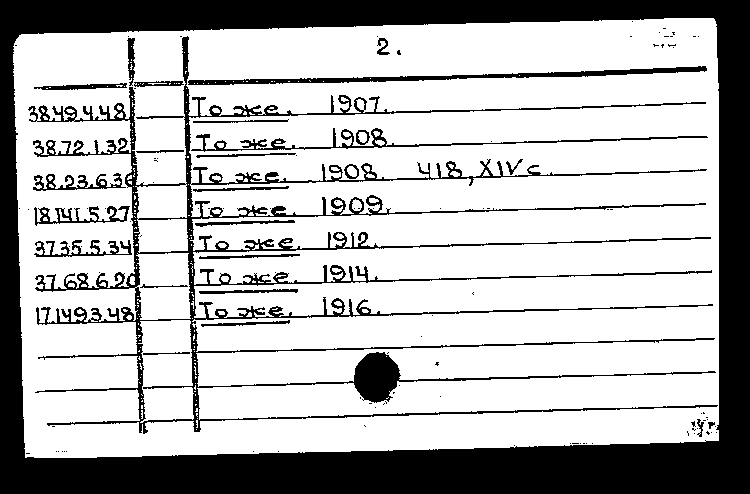 2.
38.49.4.48 То же. 1907.
38.72.1.32 То же. 1908.
38.23.6.36. То же. 1908. 418, XIV с.
18.141.5.27 То же. 1909.
37.35.5.34 То же. 1912.
37.68.6.20. То же. 1914.
17.149.3.48 То же. 1916.